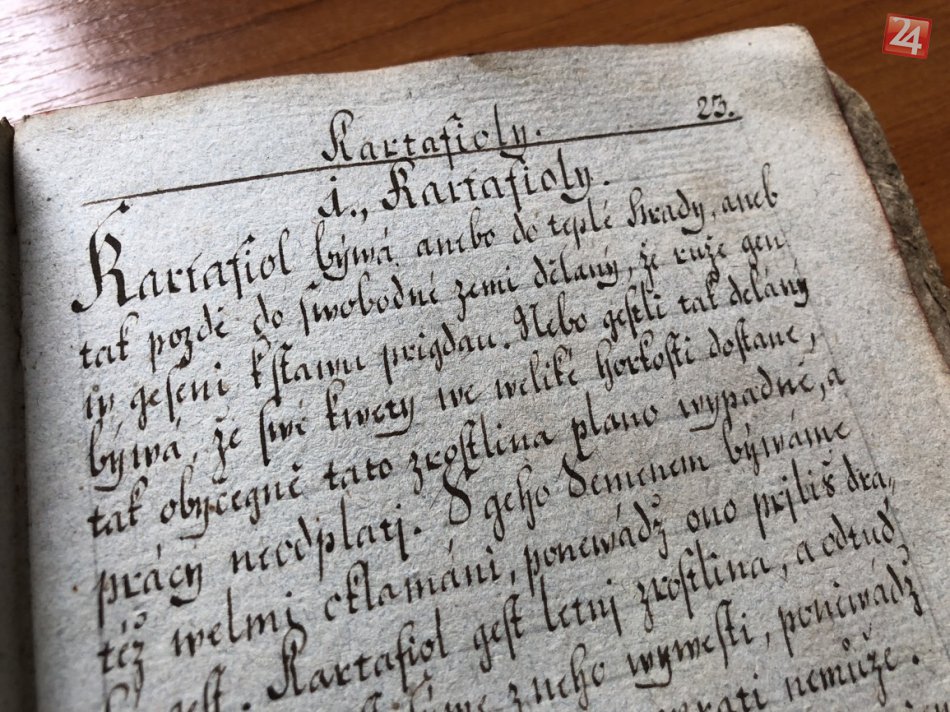 24
Kartafioly. 23.
1., Kartafioly.
Kartafiol býwá anebo do teplé hrady, aneb
tak pozdě do swobodné zemi dělaný, že ruže gen
w geseni k stawu prigdau. Nebo gestli tak dělány
býwá, že swé kwety we weliké horkosti dostane,
tak obyčegně tato zrostlina plano wypadne, a
prácy neodplatj. S geho Semenem býwáme
též welmi oklamáni, poněwádž ono prjliš dra„
gest. Kartafiol gest letnj zrostlina, a odtud
z neho wywesti, poněwádž
nemůže.